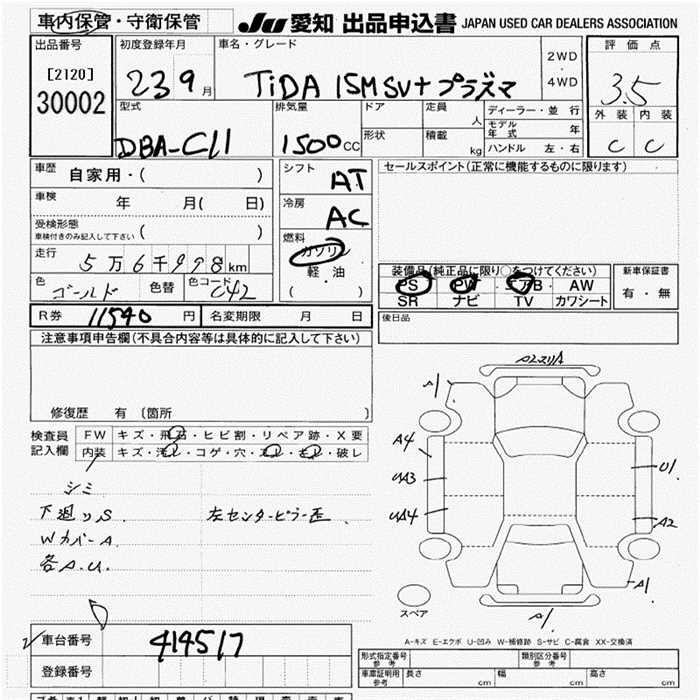 車内保管・守衛保管
JU 愛知 出品申込書 JAPAN USED CAR DEALERS ASSOCIATION
出品番号
[2120]
30002
初度登録年月
23 9月
車名・グレード
TiDA 15M SV+プラズマ
2WD・4WD
評価点
3.5
外装 内装
C C
型式
DBA-C11
排気量
1500cc
ドア
形状
定員 人
積載 kg
ディーラー・並行
モデル年式 年
ハンドル 左・右
車歴 自家用・( )
車検 年 月( 日)
受検形態
車検付きのみ記入して下さい ( )
走行 5万6千998km
色 ゴールド 色替 色コード C42
シフト AT
冷房 AC
燃料 ガソリン
軽・油
( )
セールスポイント(正常に機能するものに限ります)
装備品(純正品に限り○をつけてください)
PS PW エアB AW
SR ナビ TV カワシート
新車保証書
有・無
R券 11540円 名変期限 月 日
後日品
注意事項申告欄(不具合内容等は具体的に記入して下さい)
修復歴 有 〔箇所 〕
検査員記入欄
FW キズ・飛石・ヒビ割・リペア跡・X要
内装 キズ・汚レ・コゲ・穴・スレ・破レ
シミ
下廻りS. 左センターピラー歪.
WカバーA
各A.U.
A2スリA
A1
A4
UA3
UA4
U1
A2
A1
A1
スペア
A-キズ E-エクボ U-凹み W-補修跡 S-サビ C-腐食 XX-交換済
車台番号 414517
登録番号
形式指定番号 参考
類別区分番号 参考
車庫証明用 参考 長さ cm 幅 cm 高さ cm